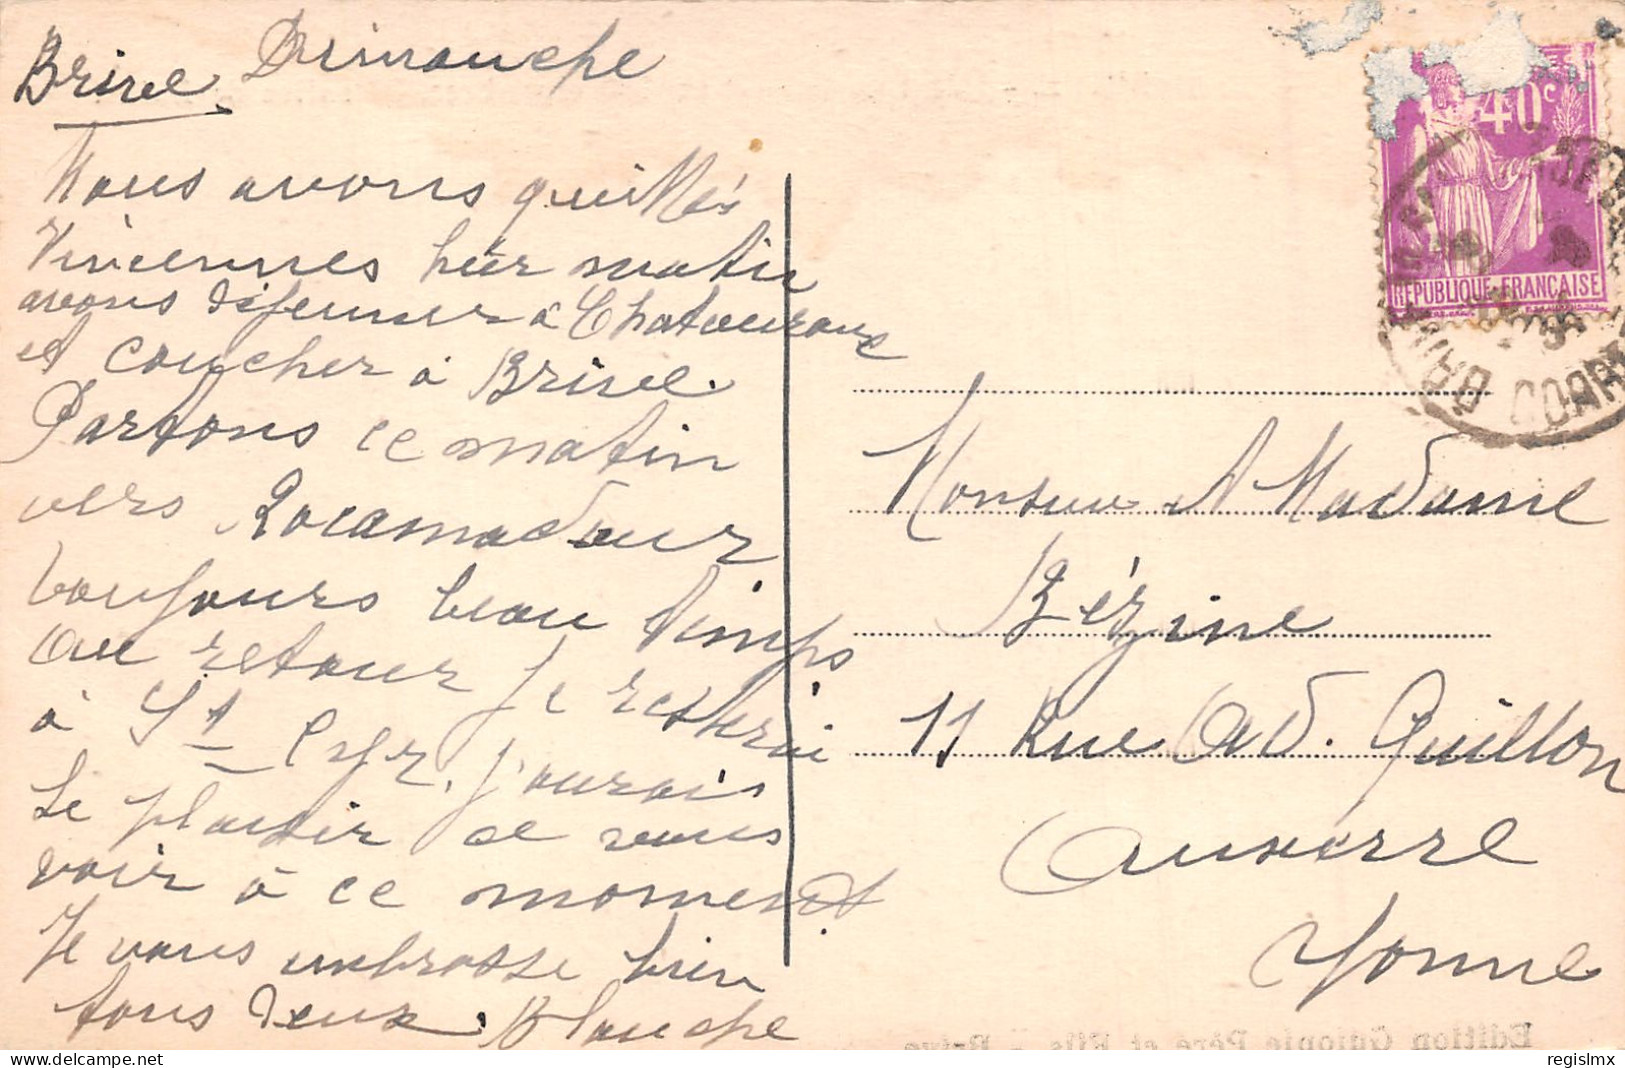 Brive Dimanche
Nous avons quittés
Vincennes hier matin
avons déjeuner à Chateauroux
et coucher à Brive.
Partons ce matin
vers Rocamadour
toujours beau temps
au retour je resterai
à St Cyr. j'aurais
le plaisir de vous
voir à ce moment
Je vous embrasse bien
tous deux. Blanche
40c
REPUBLIQUE FRANÇAISE
Monsieur et Madame
Bézine
11 Rue Ad. Guillon
Auxerre
Yonne
Edition Guionie Père et Fils - Brive
delcampe.net
regislmx